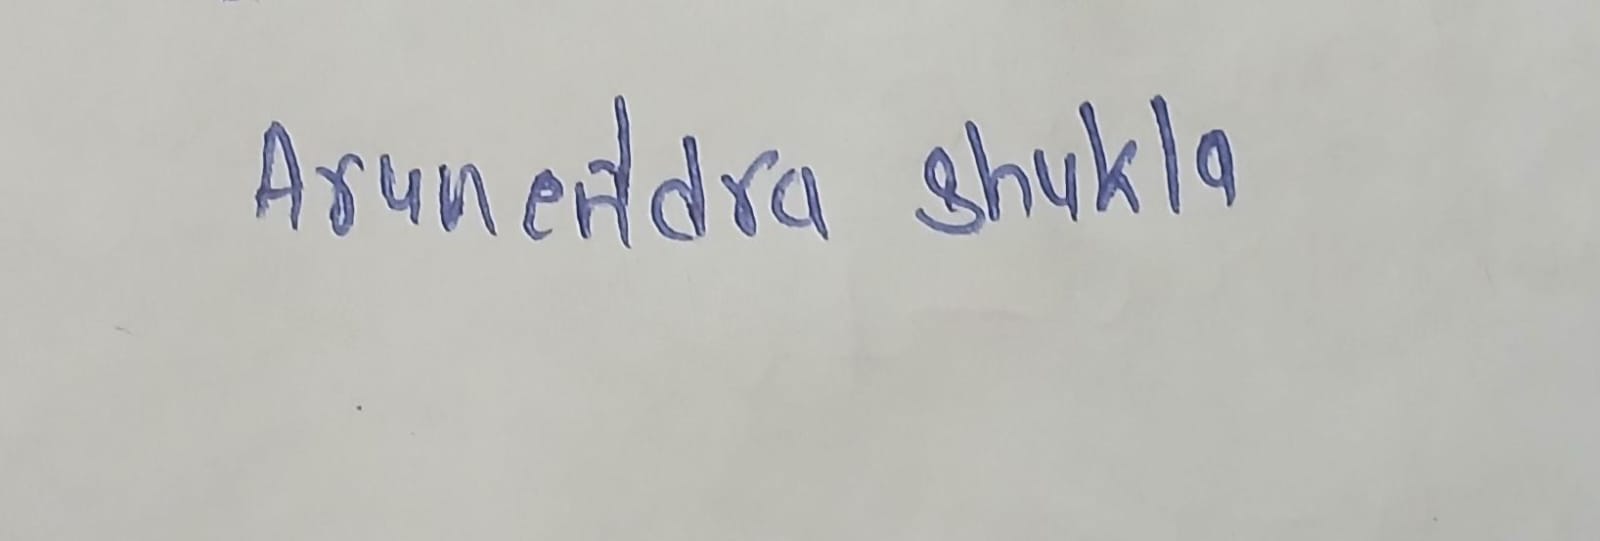 Arunendra Shukla